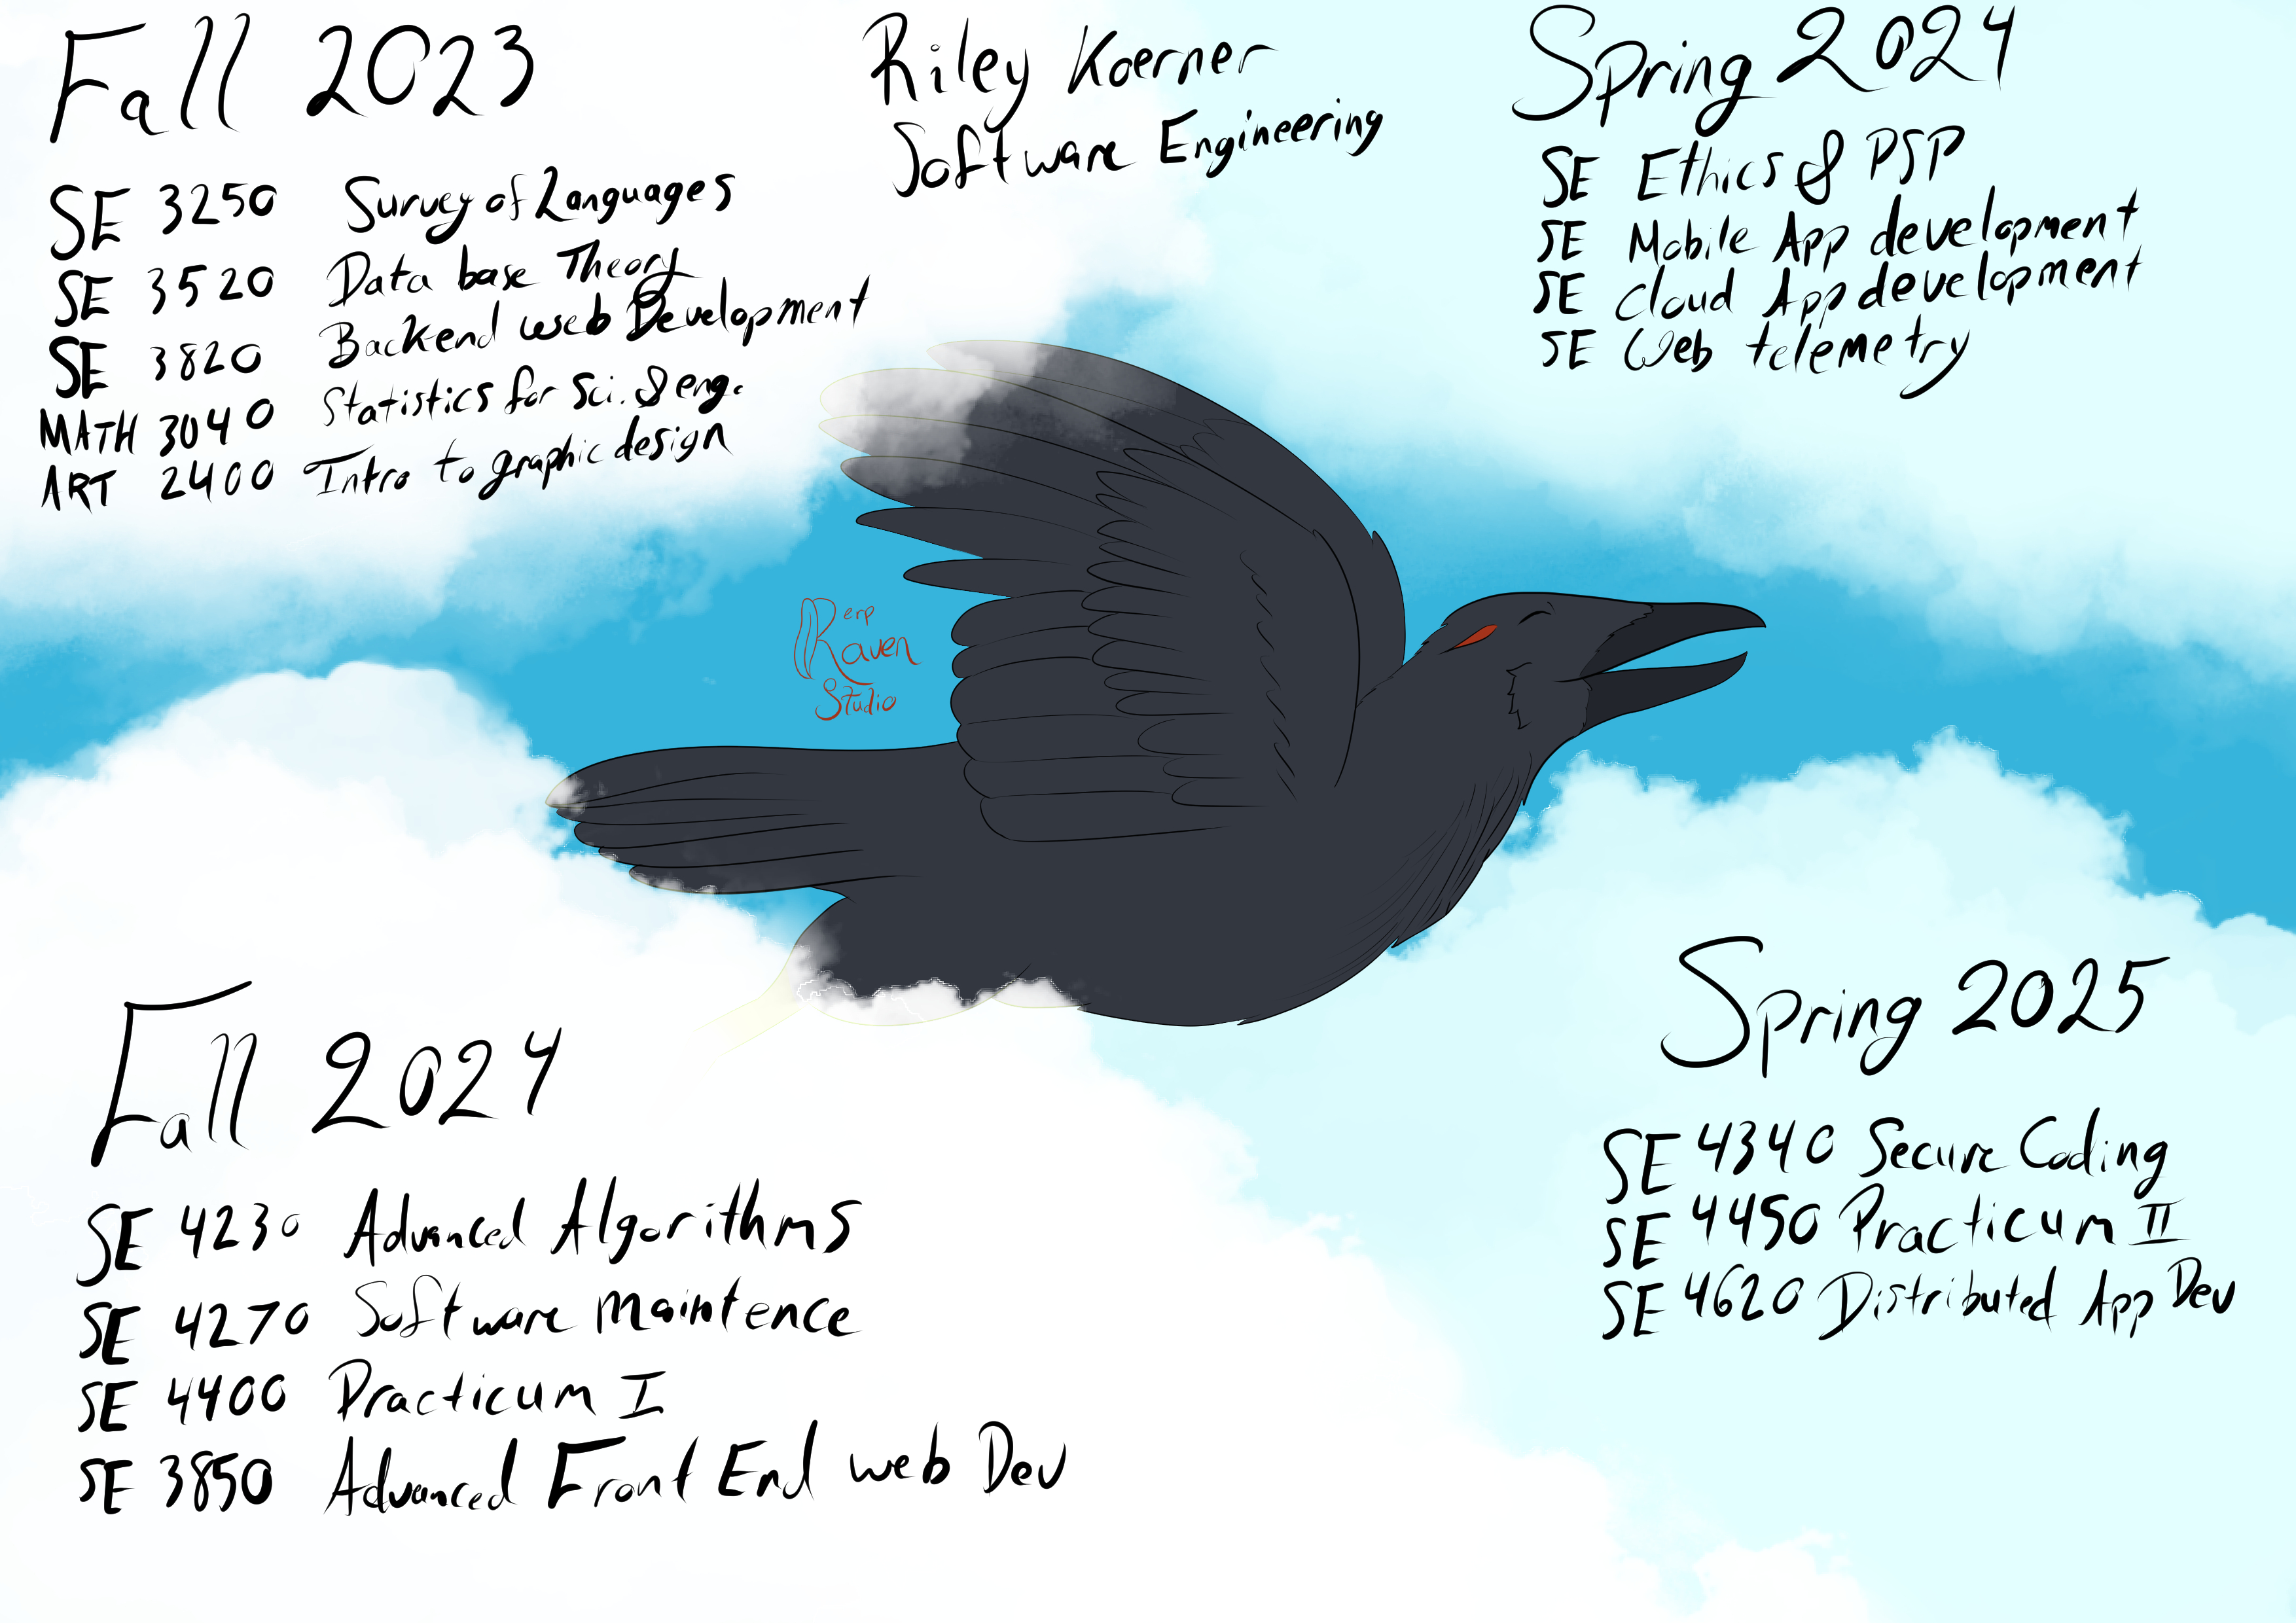 Fall 2023
SE 3250 Survey of Languages
SE 3520 Data base Theory
SE 3820 Backend web Development
MATH 3040 Statistics for Sci. & eng.
ART 2400 Intro to graphic design
Riley Koerner
Software Engineering
Spring 2024
SE Ethics & PSP
SE Mobile App development
SE Cloud App development
SE Web telemetry
Derp
Raven
Studio
Fall 2024
SE 4230 Advanced Algorithms
SE 4270 Software Maintence
SE 4400 Practicum I
SE 3850 Advanced Front End web Dev
Spring 2025
SE 4340 Secure Coding
SE 4450 Practicum II
SE 4620 Distributed App Dev